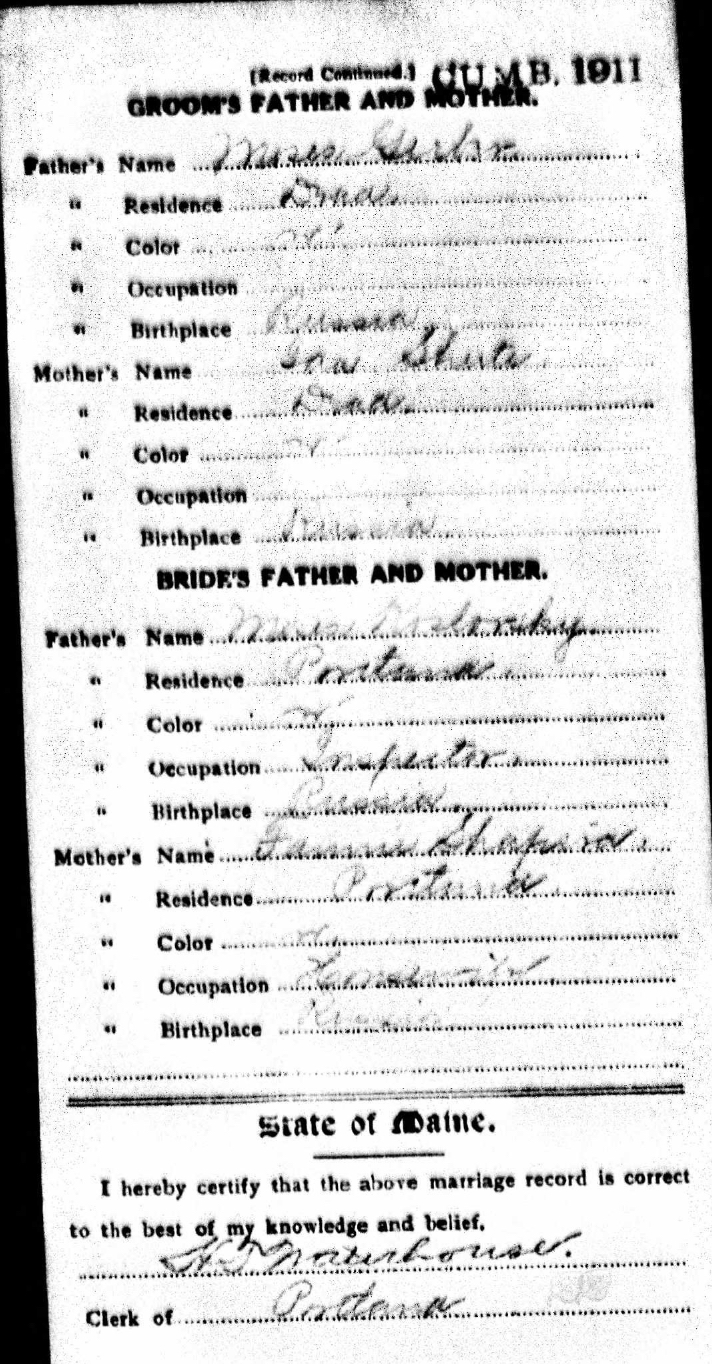 [Record Continued.] CUMB. 1911
GROOM'S FATHER AND MOTHER.
Father's Name
" Residence Dead
" Color W
" Occupation
" Birthplace Russia
Mother's Name Ida
" Residence Dead
" Color W
" Occupation
" Birthplace Russia
BRIDE'S FATHER AND MOTHER.
Father's Name
" Residence Portland
" Color W
" Occupation Inspector
" Birthplace Russia
Mother's Name Fannie Shapiro
" Residence Portland
" Color W
" Occupation Housewife
" Birthplace Russia
State of Maine.
I hereby certify that the above marriage record is correct
to the best of my knowledge and belief.
Waterhouse.
Clerk of Portland